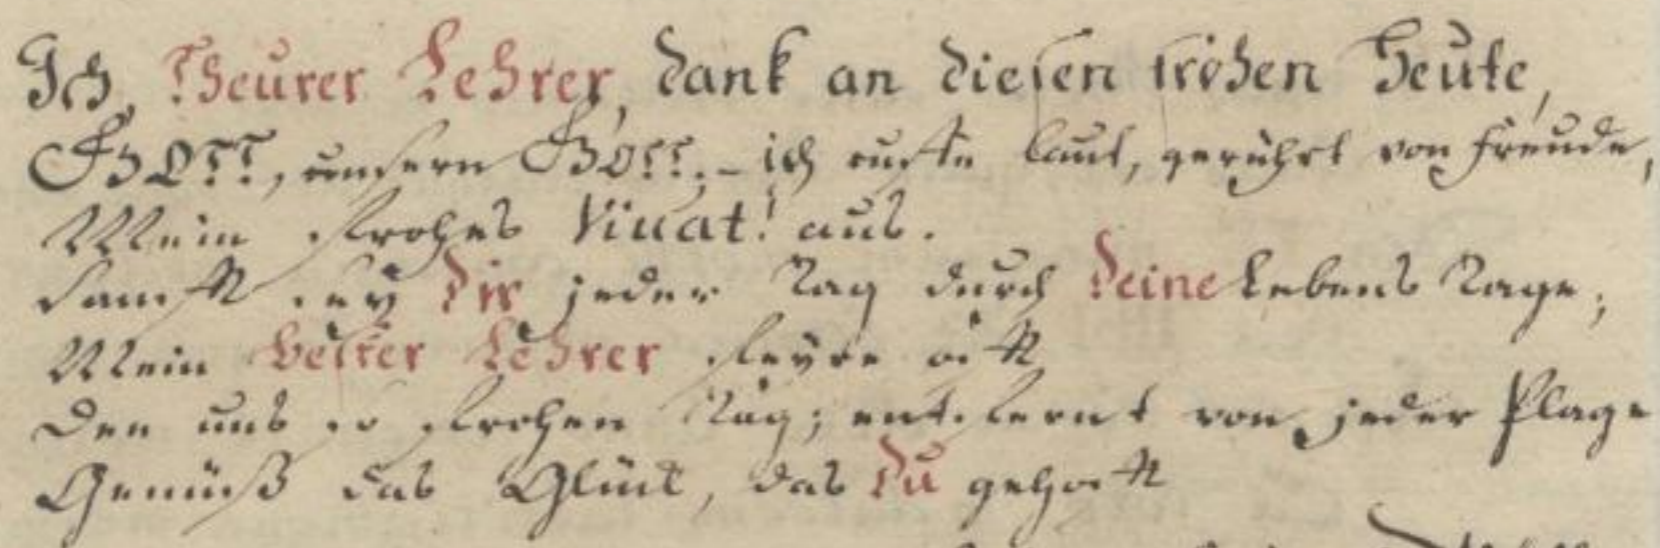 Ich, Theurer Lehrer, dank an diesen frohen Heute,
GOTT, unsern GOTT, – ich rufte laut, gerührt von Freude,
Mein frohes Vivat! aus.
Sanft sey Dir jeder Tag durch Deine Lebens Tage;
Mein bester Lehrer feyre oft
Den uns so frohen Tag; entfernt von jeder Plage
Genüß das Glük, das Du gehoft